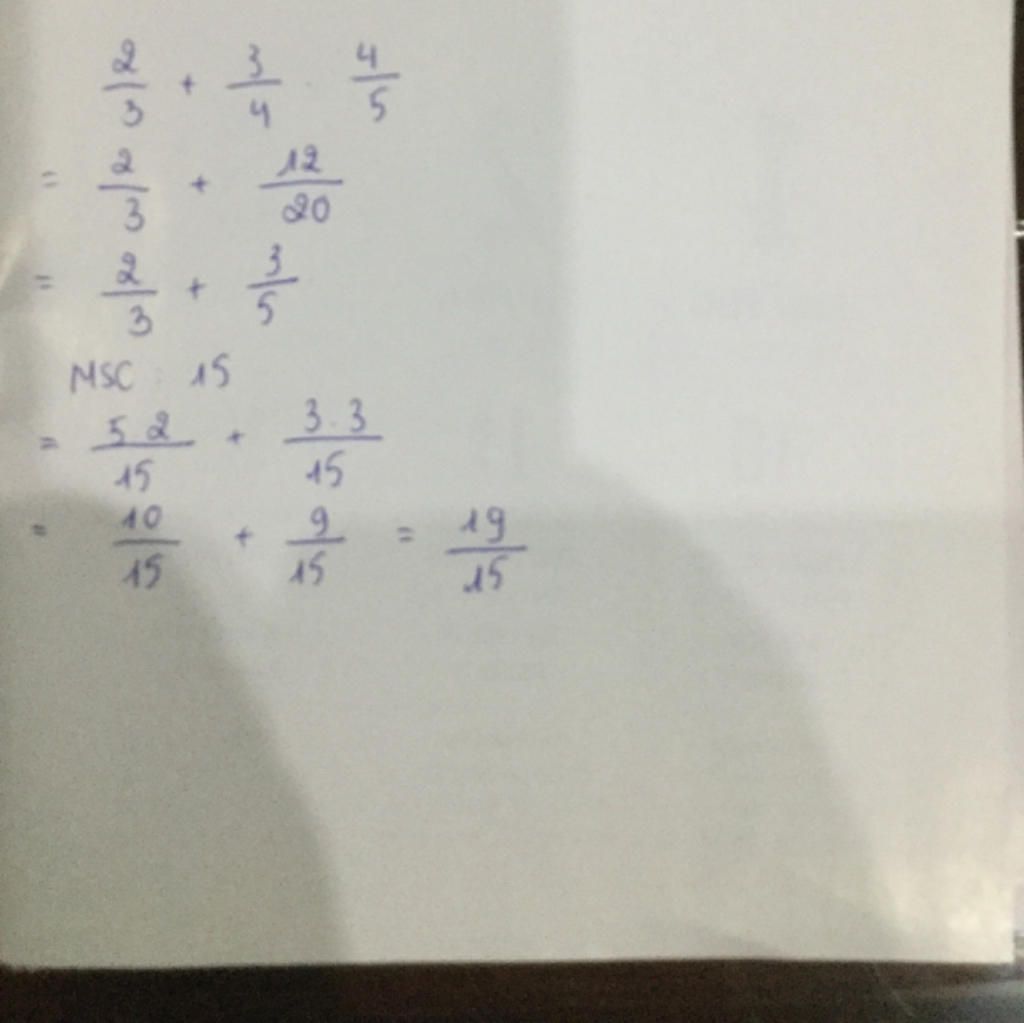 2/3 + 3/4 . 4/5
= 2/3 + 12/20
= 2/3 + 3/5
MSC : 15
= 5.2/15 + 3.3/15
= 10/15 + 9/15 = 19/15